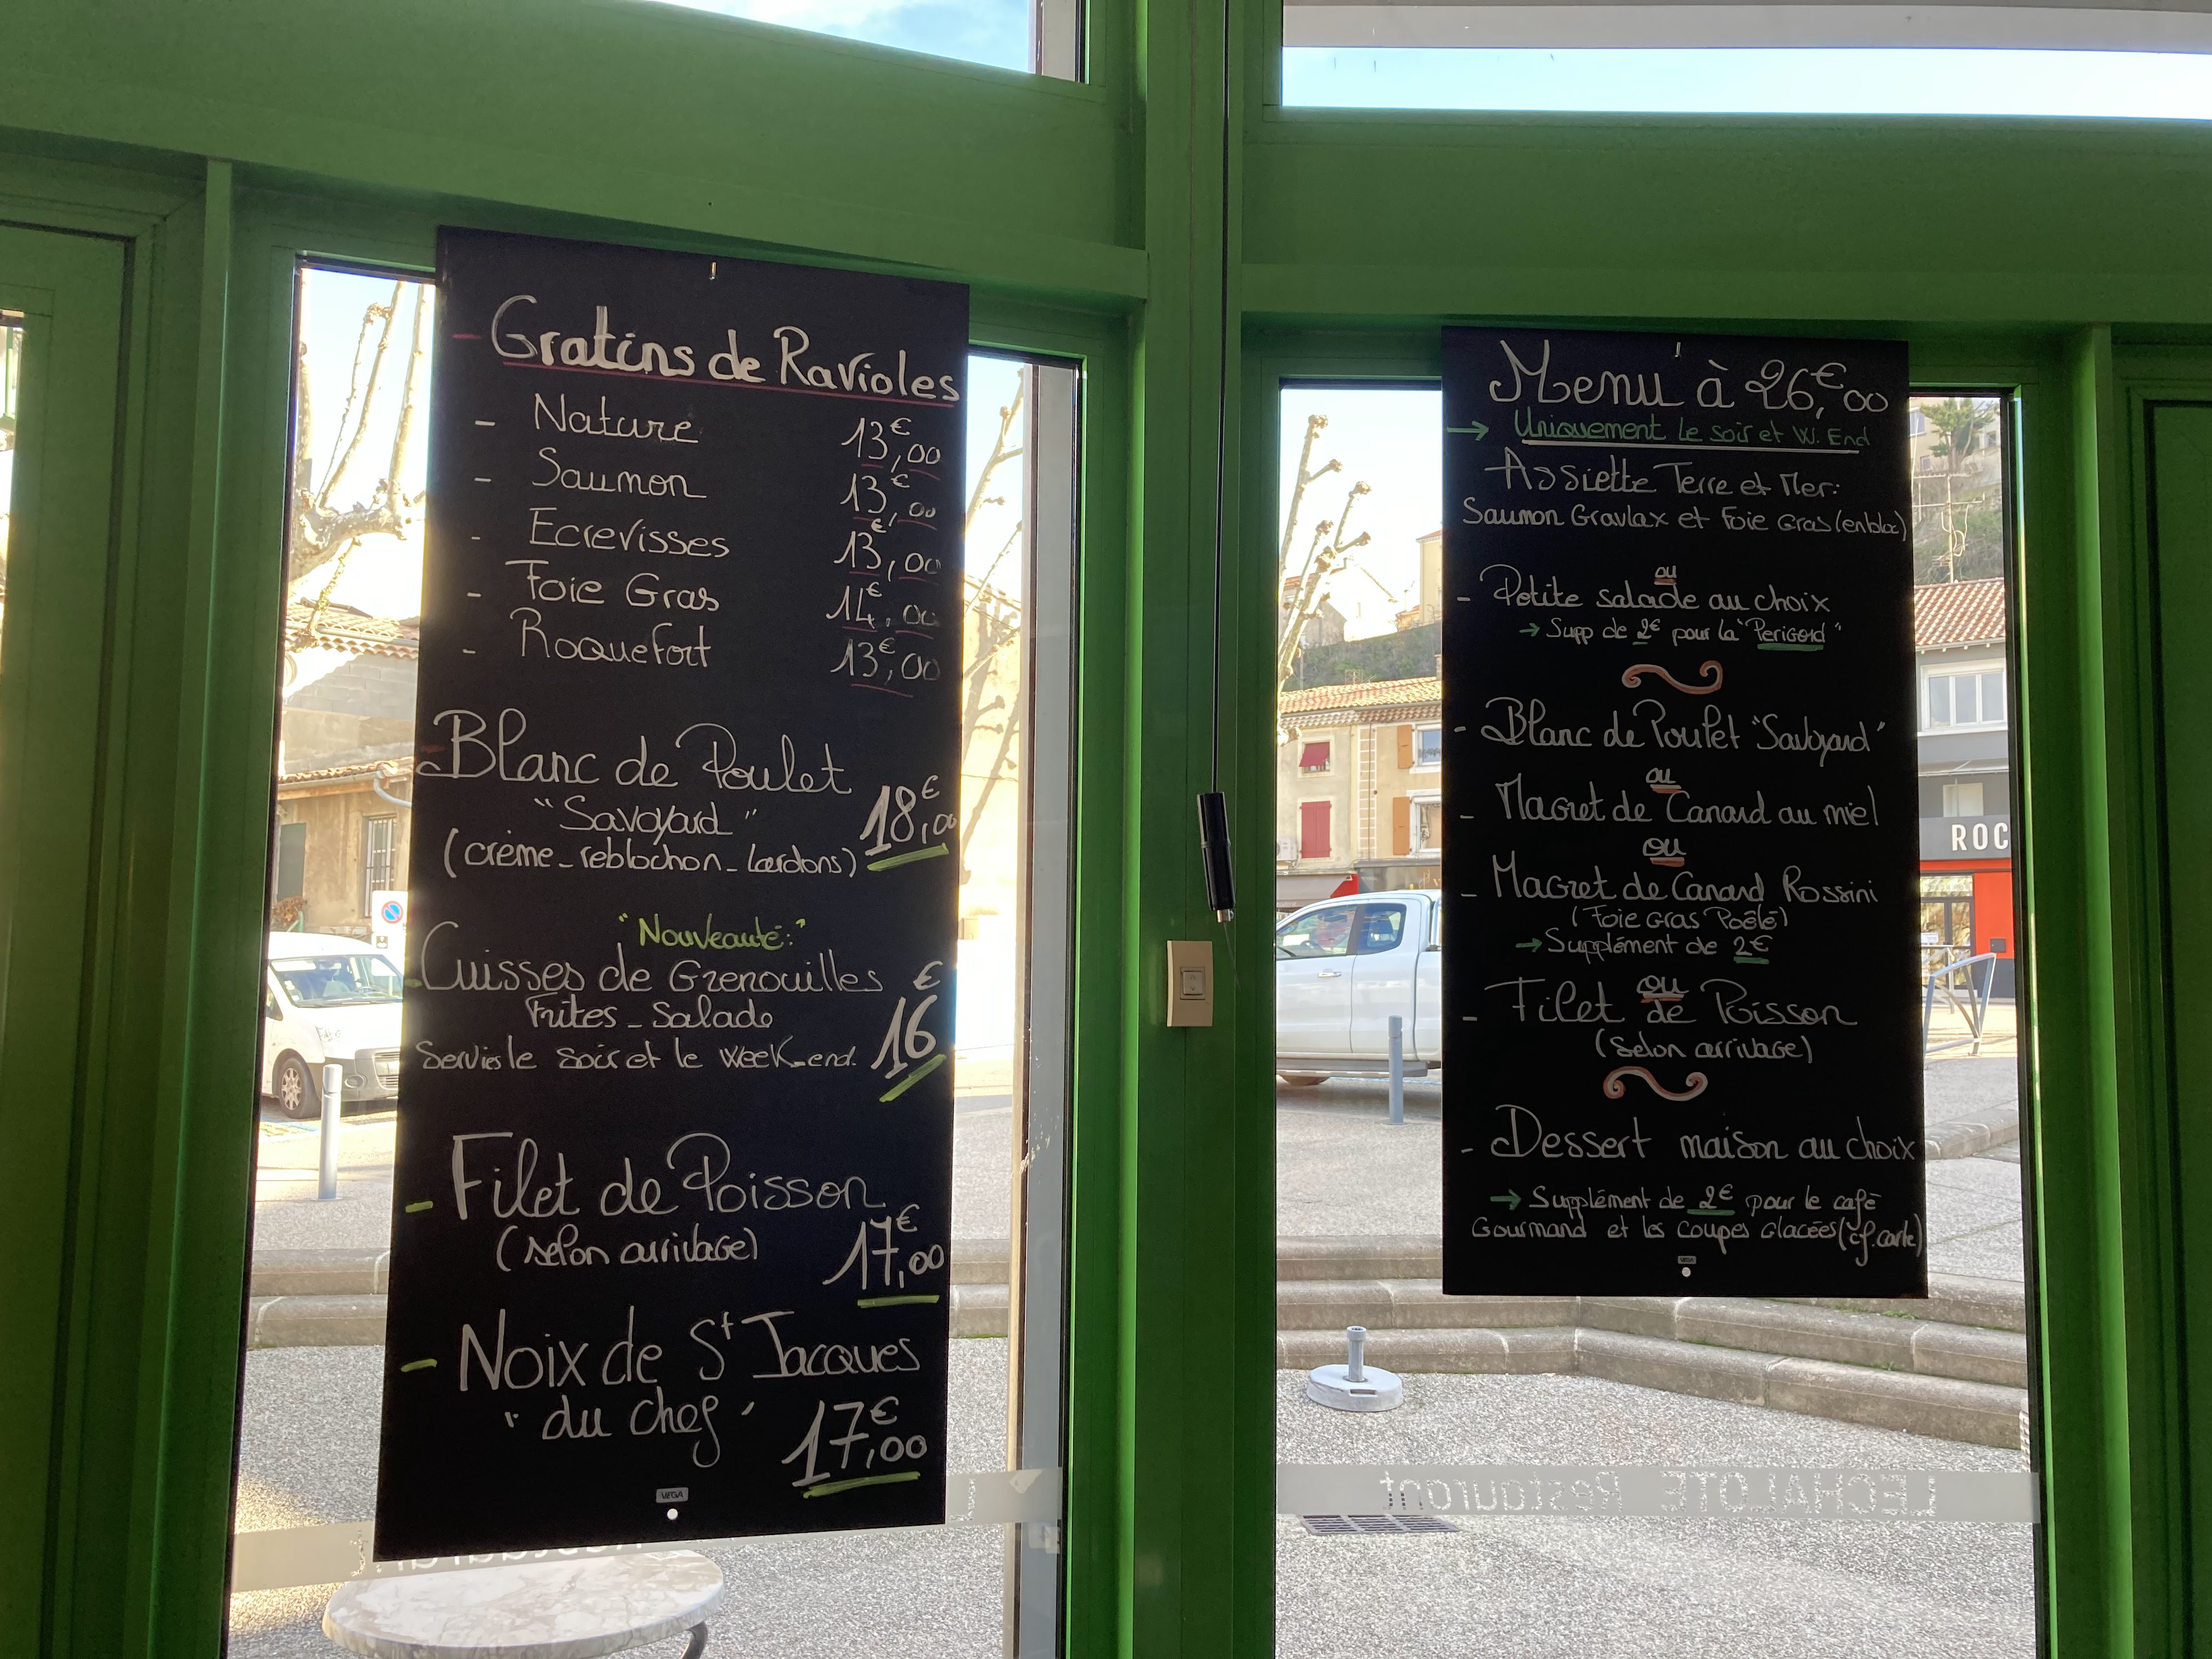 Gratins de Ravioles
- Nature 13€,00
- Saumon 13€,00
- Ecrevisses 13€,00
- Foie Gras 14€,00
- Roquefort 13€,00
- Blanc de Poulet
"Savoyard" 18€,00
(crème - reblochon - lardons)
"Nouveauté:"
- Cuisses de Grenouilles €
Frites - Salade 16
Servies le soir et le week-end.
- Filet de Poisson
(selon arrivage) 17€,00
- Noix de St Jacques
"du chef" 17€,00
VEGA
Menu à 26€,00
→ Uniquement le soir et W. End
Assiette Terre et Mer:
Saumon Gravlax et Foie Gras (en bloc)
ou
- Petite salade au choix
→ Supp de 2€ pour la "Perigord"
- Blanc de Poulet "Savoyard"
ou
- Magret de Canard au miel
ou
- Magret de Canard Rossini
(Foie Gras Poêlé)
→ Supplément de 2€
ou
- Filet de Poisson
(selon arrivage)
- Dessert maison au choix
→ Supplément de 2€ pour le café
Gourmand et les coupes glacées (cf. carte)
VEGA
ROC
L'ECHALOTE Restaurant